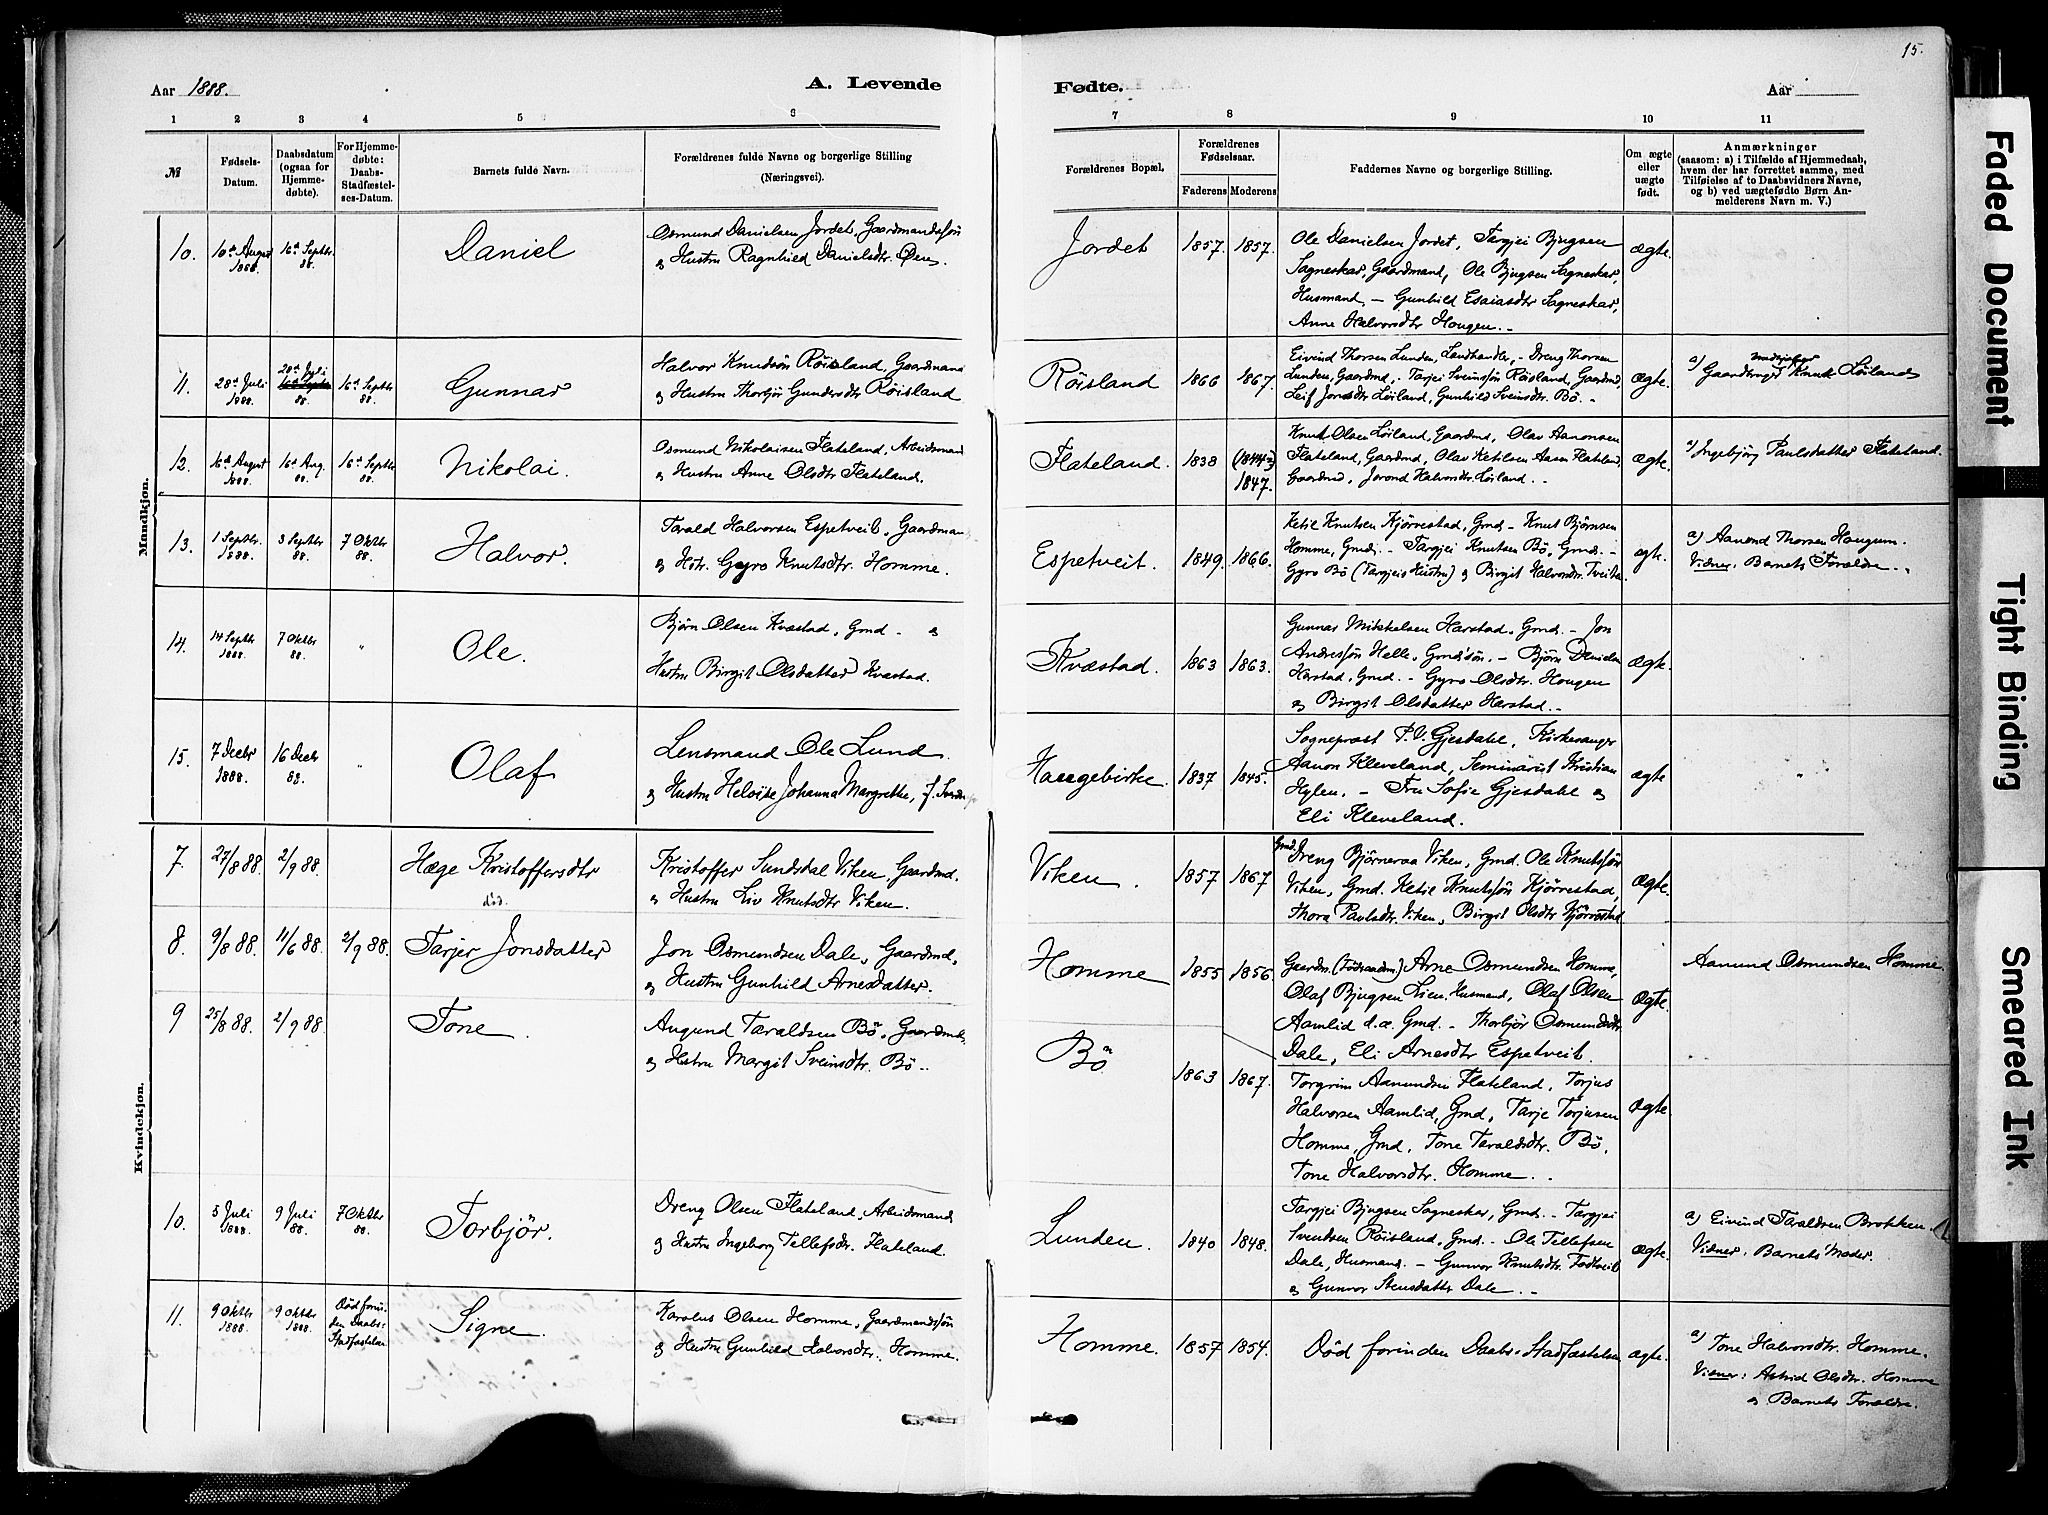 15.
Aar 1888.
A. Levende
Fødte.
Aar
1 2 3 4 5 6 7 8 9 10 11
№
Fødsels-Datum.
Daabsdatum (ogsaa for Hjemmedøbte).
For Hjemmedøbte: Daabs-Stadfæstelses-Datum.
Barnets fulde Navn.
Forældrenes fulde Navne og borgerlige Stilling (Næringsvei).
Forældrenes Bopæl.
Forældrenes Fødselsaar.
Faderens Moderens
Faddernes Navne og borgerlige Stilling.
Om ægte eller uægte født.
Anmærkninger
(saasom: a) i Tilfælde af Hjemmedaab, hvem der har forrettet samme, med Tilføielse af to Daabsvidners Navne, og b) ved uægtefødte Børn Anmelderens Navn m. V.)
Mandkjøn.
10. 10de August 1888. 16de Septbr. 88. Daniel
Osmund Danielsen Jordet, Gaardmandssøn
og Hustru Ragnhild Danielsdtr.
Jordet 1857. 1857.
Ole Danielsen Jordet, Targjei Bjugsen
Sagneskar, Gaardmand, Ole Bjugsen Sagneskar,
Husmand, – Gunhild Esaiasdtr Sagneskar,
Anne Halvorsdtr Hougen. –
Ægte.
11. 28de Juli 1888. 28de Juli 88. 16de Septbr 88. Gunnar
Halvor Knudsøn Röisland, Gaardmand
og Hustru Thorbjör Gundersdtr Röisland
Röisland 1866 1867.
Eivind Thorsen Lunden, Landhandler, – Dreng Thorsen
Lunden, Gaardmd, – Tarjei Sveinssøn Röisland, Gaardmd,
Leif Jonsdtr Löiland, Gunhild Sveinsdtr. Bö. –
Ægte.
a) Gaardbruger Knut Löiland
12. 16de August 1888. 16de Aug. 88. 16de Septbr 88. Nikolai.
Osmund Nikolaisen Flateland, Arbeidsmand
og Hustru Anne Olsdtr Flateland.
Flateland. 1838 1847.
Knut Olsen Löiland, Gaardmd, Olav Aanonsen
Flateland, Gaardmd, Olav Ketilsen Aasen Flateland,
Gaardmd, Jorond Halvorsdtr. Löiland. –
Ægte.
a) Ingebjörg Paulsdatter Flateland.
13. 1 Septbr. 1888. 3 Septbr 88. 7 Oktbr 88. Halvor.
Tarald Halvorsen Espetveit, Gaardmand
og Hstr. Gyro Knutsdtr. Homme.
Espetveit. 1849. 1866.
Ketil Knutsen Kjörrestad, Gmd – Knut Björnsen
Homme, Gmd. – Targjei Knutsen Bö, Gmd. –
Gyro Bö (Targjeis Hustru) og Birgit Halvorsdtr. Tveiten.
ægte.
a) Aanond Thorsen Hougum.
Vidner: Barnets Forældre. „
14. 14 Septbr 1888. 7 Oktbr 88. „ Ole.
Björn Olsen Kvæstad, Gmd – og
Hustru Birgit Olsdatter Kvæstad.
Kvæstad. 1863 1863.
Gunnar Mikkelsen Harstad, Gmd. – Jon
Andressøn Helle, Gmdssøn. – Björn Danielsen
Harstad, Gmd. – Gyro Olsdtr. Hougen
og Birgit Olsdatter Harstad. –
Ægte. „
15. 7 Decbr 1888. 16 Decbr 88. „ Olaf
Lensmand Ole Lund
og Hustru Helvike Johanna Margrethe,
Haugebirke. 1837 1845.
Sogneprest P. V. Gjesdahl, Kirkesanger
Aanon Kleveland, Seminarist Kristian
Hylen. – Fru Sofie Gjesdahl og
Eli Kleveland.
Ægte „
Kvindekjøn.
7. 27/8 88. 2/9 88. Hæge Kristoffersdtr
död.
Kristoffer Sundsdal Viken, Gaardmd.
og Hustru Liv Knutsdtr Viken.
Viken. 1857 1867
Gmd. Dreng Björnaraa Viken, Gmd. Ole Knutssøn
Viken, Gmd. Ketil Knutssøn Kjörrestad,
Thora Paulsdtr. Viken, Birgit Olsdtr Kjörrestad
Ægte.
8. 9/8 88. 11/6 88. 2/9 88. Tarjer Jonsdatter
Jon Osmundsen Dale, Gaardmd,
og Hustru Gunhild Arnesdatter.
Homme 1855 1856.
Gaardm. (Föderaadm.) Arne Osmundsen Homme,
Olaf Bjugsen Lien, Husmand, Olaf Olsen
Aamlid d. æ. Gmd. – Thorbjör Osmundsdtr
Dale, Eli Arnesdtr Espetveit.
Ægte.
Aanund Osmundsen Homme.
9 25/8 88. 2/9 88. Tone
Augund Taraldsen Bö, Gaardmd,
og Hstru Margit Sveinsdtr. Bö. –
Bö 1863 1867.
Torgrim Aanundsen Flateland, Torjus
Halvorsen Aamlid, Gmd, Tarje Torjusen
Homme, Gmd, Tone Taraldsdtr. Bö.
Tone Halvorsdtr. Homme. –
Ægte.
10. Juli 1888. 9 Juli 88. 7 Oktbr 88. Torbjör.
Dreng Olsen Flateland, Arbeidsmand
og Hustru Ingeborg Tellefsdtr. Flateland.
Lunden. 1840 1848.
Targjei Bjugsen Sagneskar, Gmd. – Targjei
Sveinsen Röisland, Gmd. – Ole Tellefsen
Dale, Husmand. – Gunvor Knutsdtr.
og Gunvor Stensdatter Dale. –
Ægte.
a) Eivind Taraldsen Brokken.
Vidner: Barnets Moder.
11. 9 Oktbr 1888. 9 Oktbr 1888. Död forinden Daabs-Stadfæstelsen. Signe.
Karolus Olsen Homme, Gaardmandssön
og Hustru Gunhild Halvorsdtr. Homme.
Homme. 1857 1854.
Död forinden Daabs-Stadfæstelsen
ægte.
a) Tone Halvorsdtr. Homme.
Vidner: Astrid Olsdtr. Homme
og Barnets Forældre.
Faded Document
Tight Binding
Smeared Ink